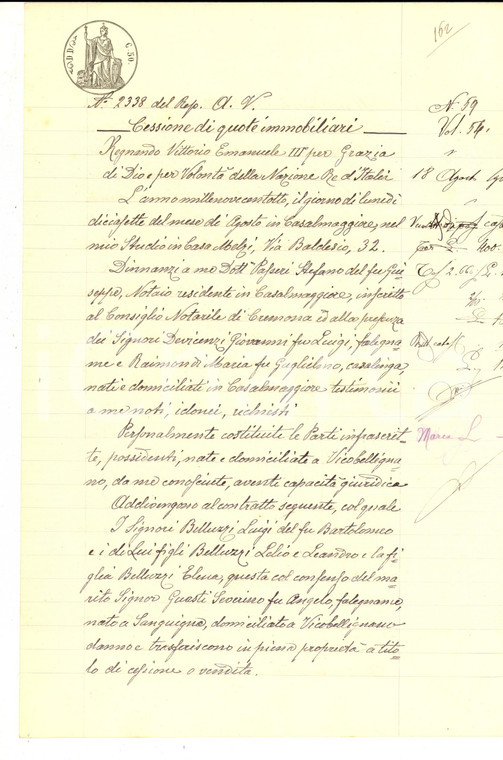 162
C. 50.
N.° 2338 del Rep. A. V.
N. 59
Cessione di quote immobiliari
Vol. 54.
Regnando Vittorio Emanuele III° per Grazia
di Dio e per Volontà della Nazione Re d'Italia
18 Agosto
L'anno millenovecentotto, il giorno di lunedì
diciasette del mese de' Agosto in Casalmaggiore, nel
mio Studio in Casa Via Baldesio, 32.
Dinnanzi a me Dott. Vasseri Stefano del fu Giu
seppe, Notaio residente in Casalmaggiore, inscritto
al Consiglio Notarile di Cremona ed alla presenza
dei Signori Devicenzi Giovanni fu Luigi, falegna
me e Raimondi Maria fu Guglielmo, casalinga,
nati e domiciliati in Casalmaggiore testimonii
a me noti, idonei, richiesti
Personalmente costituite le Parti infrascrit
Marca L
te, possidenti, nate e domiciliate a Vicobelligna
no, da me conosciute, avente capacità giuridica
Addivengono al contratto seguente, col quale
I Signori Belluzzi Luigi del fu Bartolomeo
e i di Lui figli Belluzzi Lelio e Leandro e la fi
glia Belluzzi Elena, questa col consenso del ma
rito Signor Guesti Severino fu Angelo, falegname,
nato a Sanguigna, domiciliato a Vicobellignano
danno e trasferiscono in piena proprietà a tito
lo di cessione o vendita.